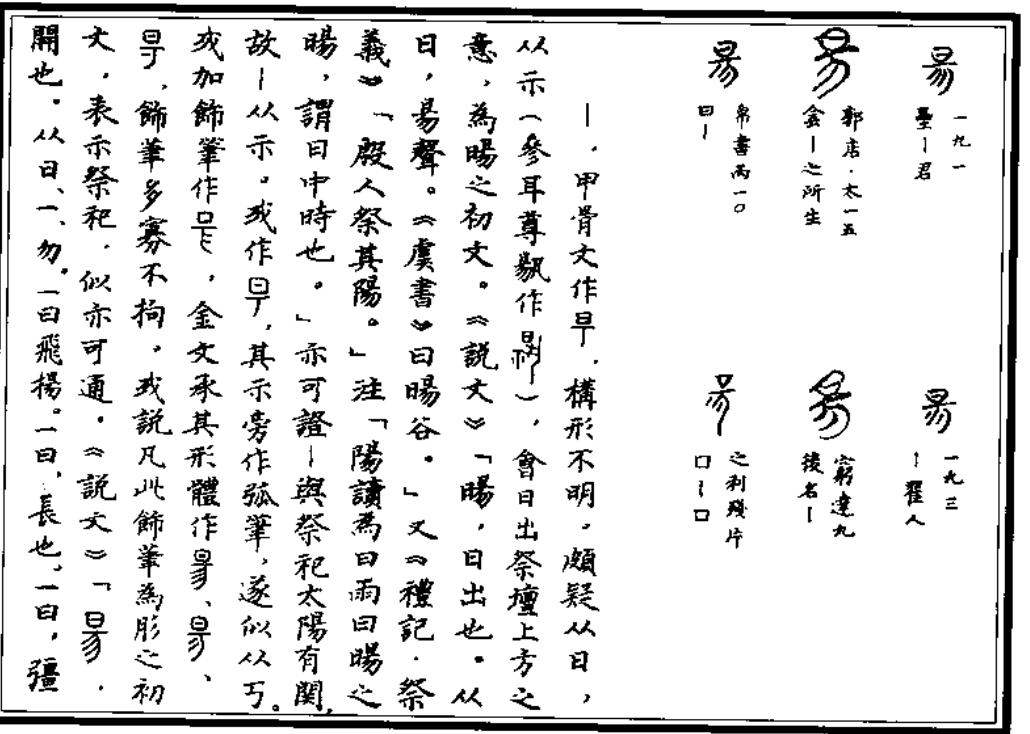 昜 一九一
壘—君
昜 郭店·太一五
侌—之所生
昜 帛書丙一〇
曰—
昜 一九三
—翟人
昜 窮達九
後名—
昜 之利殘片
口—口
—,甲骨文作,構形不明,頗疑从日,
从示(參耳尊觀作),會日出祭壇上方之
意,為暘之初文。《說文》「暘,日出也。从
日,昜聲。《虞書》曰暘谷。」又《禮記·祭
義》「殷人祭其陽。」注「陽讀為曰雨曰暘之
暘,謂日中時也。」亦可證—與祭祀太陽有關,
故—从示。或作,其示旁作弧筆,遂似从丂。
或加飾筆作,金文承其形體作、、
,飾筆多寡不拘。或說凡此飾筆為彤之初
文,表示祭祀,似亦可通。《說文》「昜,
開也。从日、一、勿。一曰飛揚。一曰,長也。一曰,彊